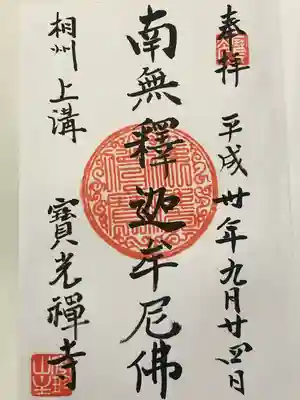 奉拝 平成卅年九月廿四日
南無釋迦牟尼佛
相州 上溝 寶光禪寺